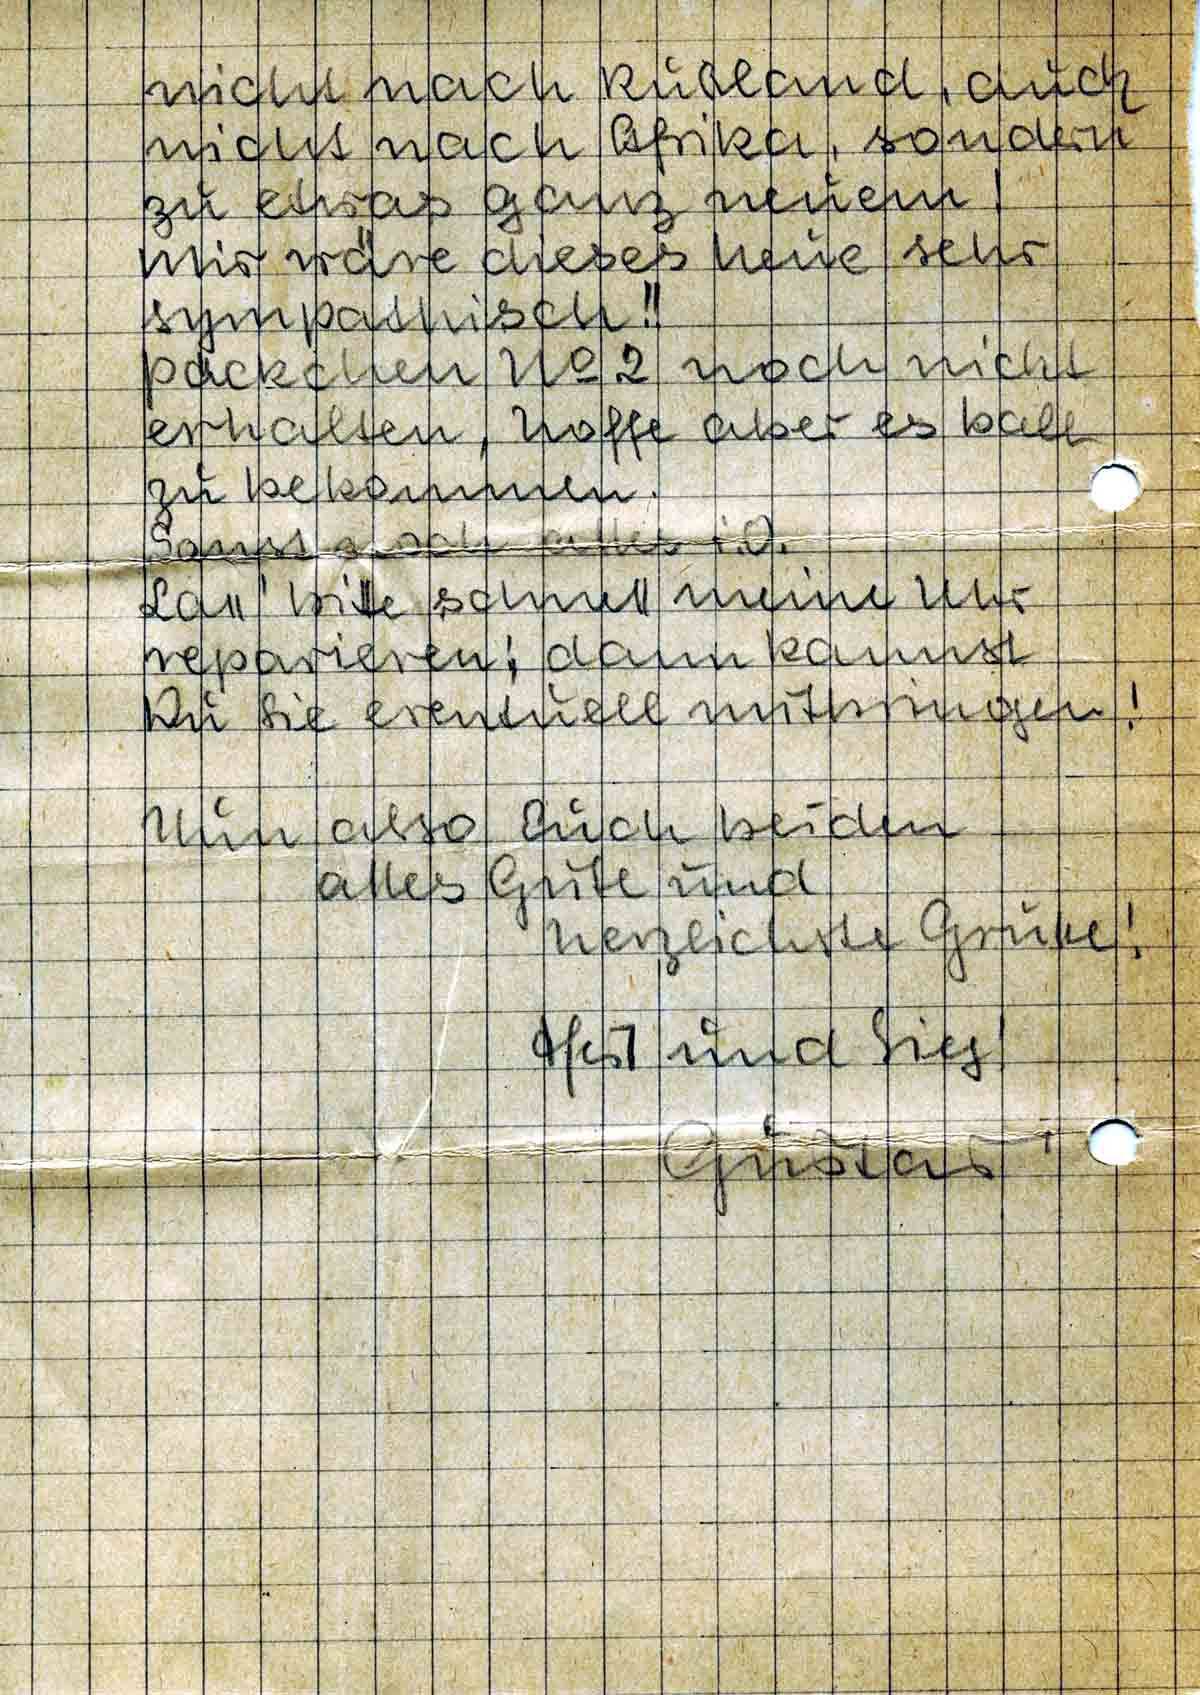 nicht nach Rußland, auch
nicht nach Afrika, sondern
zu etwas ganz neuem!
Mir wäre dieses neue sehr
sympathisch!!
Päckchen No 2 noch nicht
erhalten, hoffe aber es bald
zu bekommen.
Sonst noch alles i.O.
Laß' bitte schnell meine Uhr
reparieren; dann kannst
Du sie eventuell mitbringen!
Nun also Euch beiden
alles Gute und
herzlichste Grüße!
Heil und Sieg!
Gustav!